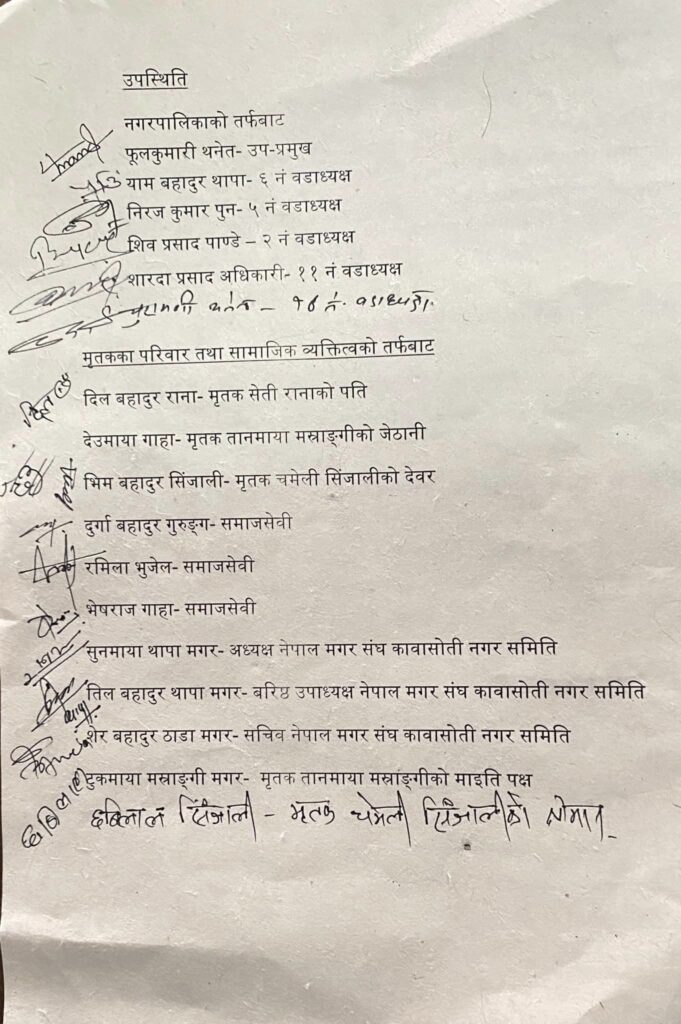 उपस्थिति
नगरपालिकाको तर्फबाट
फूलकुमारी थनेत- उप-प्रमुख
याम बहादुर थापा- ६ नं वडाध्यक्ष
निरज कुमार पुन- ५ नं वडाध्यक्ष
शिव प्रसाद पाण्डे – २ नं वडाध्यक्ष
शारदा प्रसाद अधिकारी- ११ नं वडाध्यक्ष
मृतकका परिवार तथा सामाजिक व्यक्तित्वको तर्फबाट
दिल बहादुर राना- मृतक सेती रानाको पति
देउमाया गाहा- मृतक तानमाया मस्राङ्गीको जेठानी
भिम बहादुर सिंजाली- मृतक चमेली सिंजालीको देवर
दुर्गा बहादुर गुरुङ्ग- समाजसेवी
रमिला भुजेल- समाजसेवी
भेषराज गाहा- समाजसेवी
सुनमाया थापा मगर- अध्यक्ष नेपाल मगर संघ कावासोती नगर समिति
तिल बहादुर थापा मगर- बरिष्ठ उपाध्यक्ष नेपाल मगर संघ कावासोती नगर समिति
शेर बहादुर ठाडा मगर- सचिव नेपाल मगर संघ कावासोती नगर समिति
टुकमाया मस्राङ्गी मगर- मृतक तानमाया मस्रांङ्गीको माइति पक्ष
छबिलाल सिंजाली - मृतक चमेली सिंजालीको